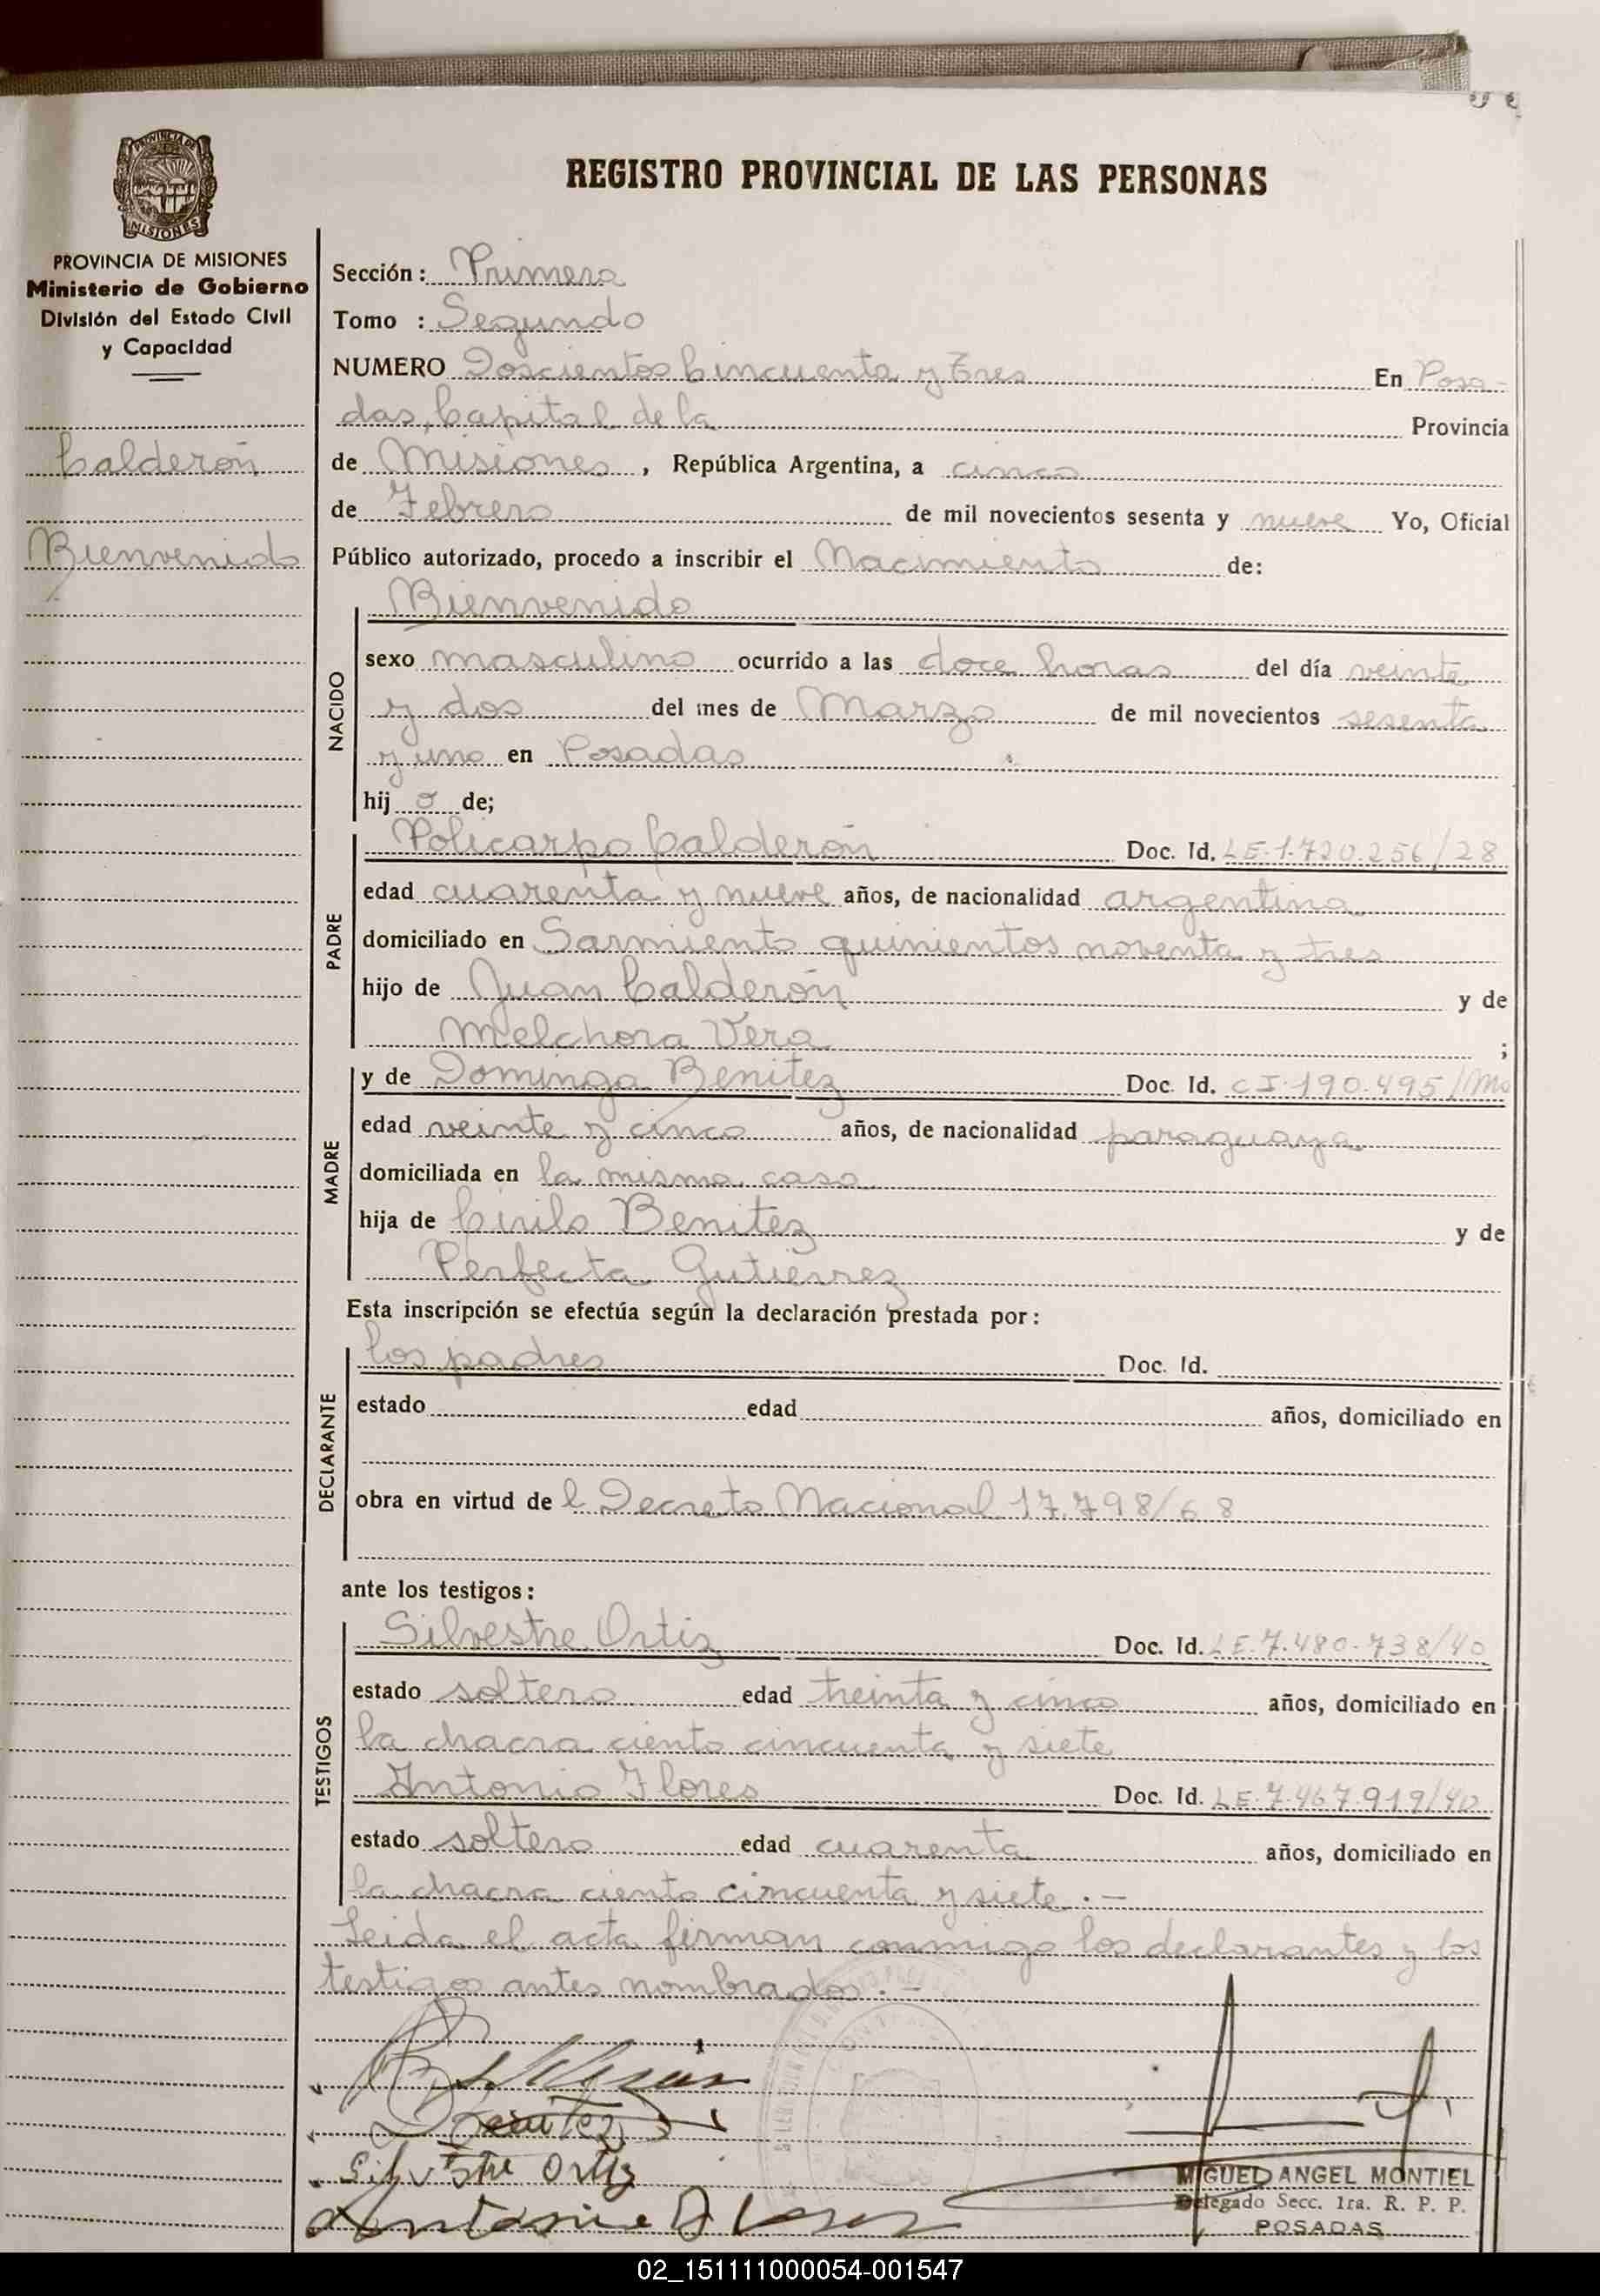 PROVINCIA DE
MISIONES
REGISTRO PROVINCIAL DE LAS PERSONAS
PROVINCIA DE MISIONES
Ministerio de Gobierno
División del Estado Civil
y Capacidad
Calderón
Bienvenido
Sección: Primera
Tomo : Segundo
NUMERO Doscientos Cincuenta y Tres En Posa-
das, Capital de la Provincia
de Misiones, República Argentina, a cinco
de Febrero de mil novecientos sesenta y nueve Yo, Oficial
Público autorizado, procedo a inscribir el Nacimiento de:
Bienvenido
NACIDO
sexo masculino ocurrido a las doce horas del día veinte
y dos del mes de Marzo de mil novecientos sesenta
y uno en Posadas
hij o de;
Policarpo Calderón Doc. Id. LE.1.720.256/28
PADRE
edad cuarenta y nueve años, de nacionalidad argentina
domiciliado en Sarmiento quinientos noventa y tres
hijo de Juan Calderón y de
Melchora Vera ;
y de Dominga Benitez Doc. Id. CI.190.495/Mo
MADRE
edad veinte y cinco años, de nacionalidad paraguaya
domiciliada en la misma casa
hija de Cirilo Benitez y de
Perfecta Gutierrez
Esta inscripción se efectúa según la declaración prestada por:
los padres Doc. Id.
DECLARANTE
estado edad años, domiciliado en
obra en virtud de l Decreto Nacional 17.798/68
ante los testigos:
Silvestre Ortiz Doc. Id. LE.7.480.738/40
TESTIGOS
estado soltero edad treinta y cinco años, domiciliado en
la chacra ciento cincuenta y siete
Antonio Flores Doc. Id. LE.7.467.919/40
estado soltero edad cuarenta años, domiciliado en
la chacra ciento cincuenta y siete.-
Leida el acta firman conmigo los declarantes y los
testigos antes nombrados.-
Benitez
Silvestre Ortiz
Antonio Flores
MIGUEL ANGEL MONTIEL
Delegado Secc. 1ra. R. P. P.
POSADAS
02_151111000054-001547